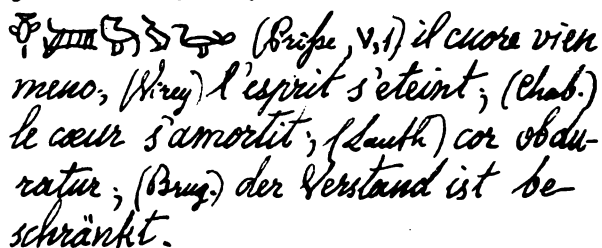 (Prisse, V, 1) il cuore vien
meno; (Virey) l'esprit s'eteint; (Chab.)
le cœur s'amortit; (Lauth) cor obdu-
ratur; (Brug.) der Verstand ist be-
schränkt.